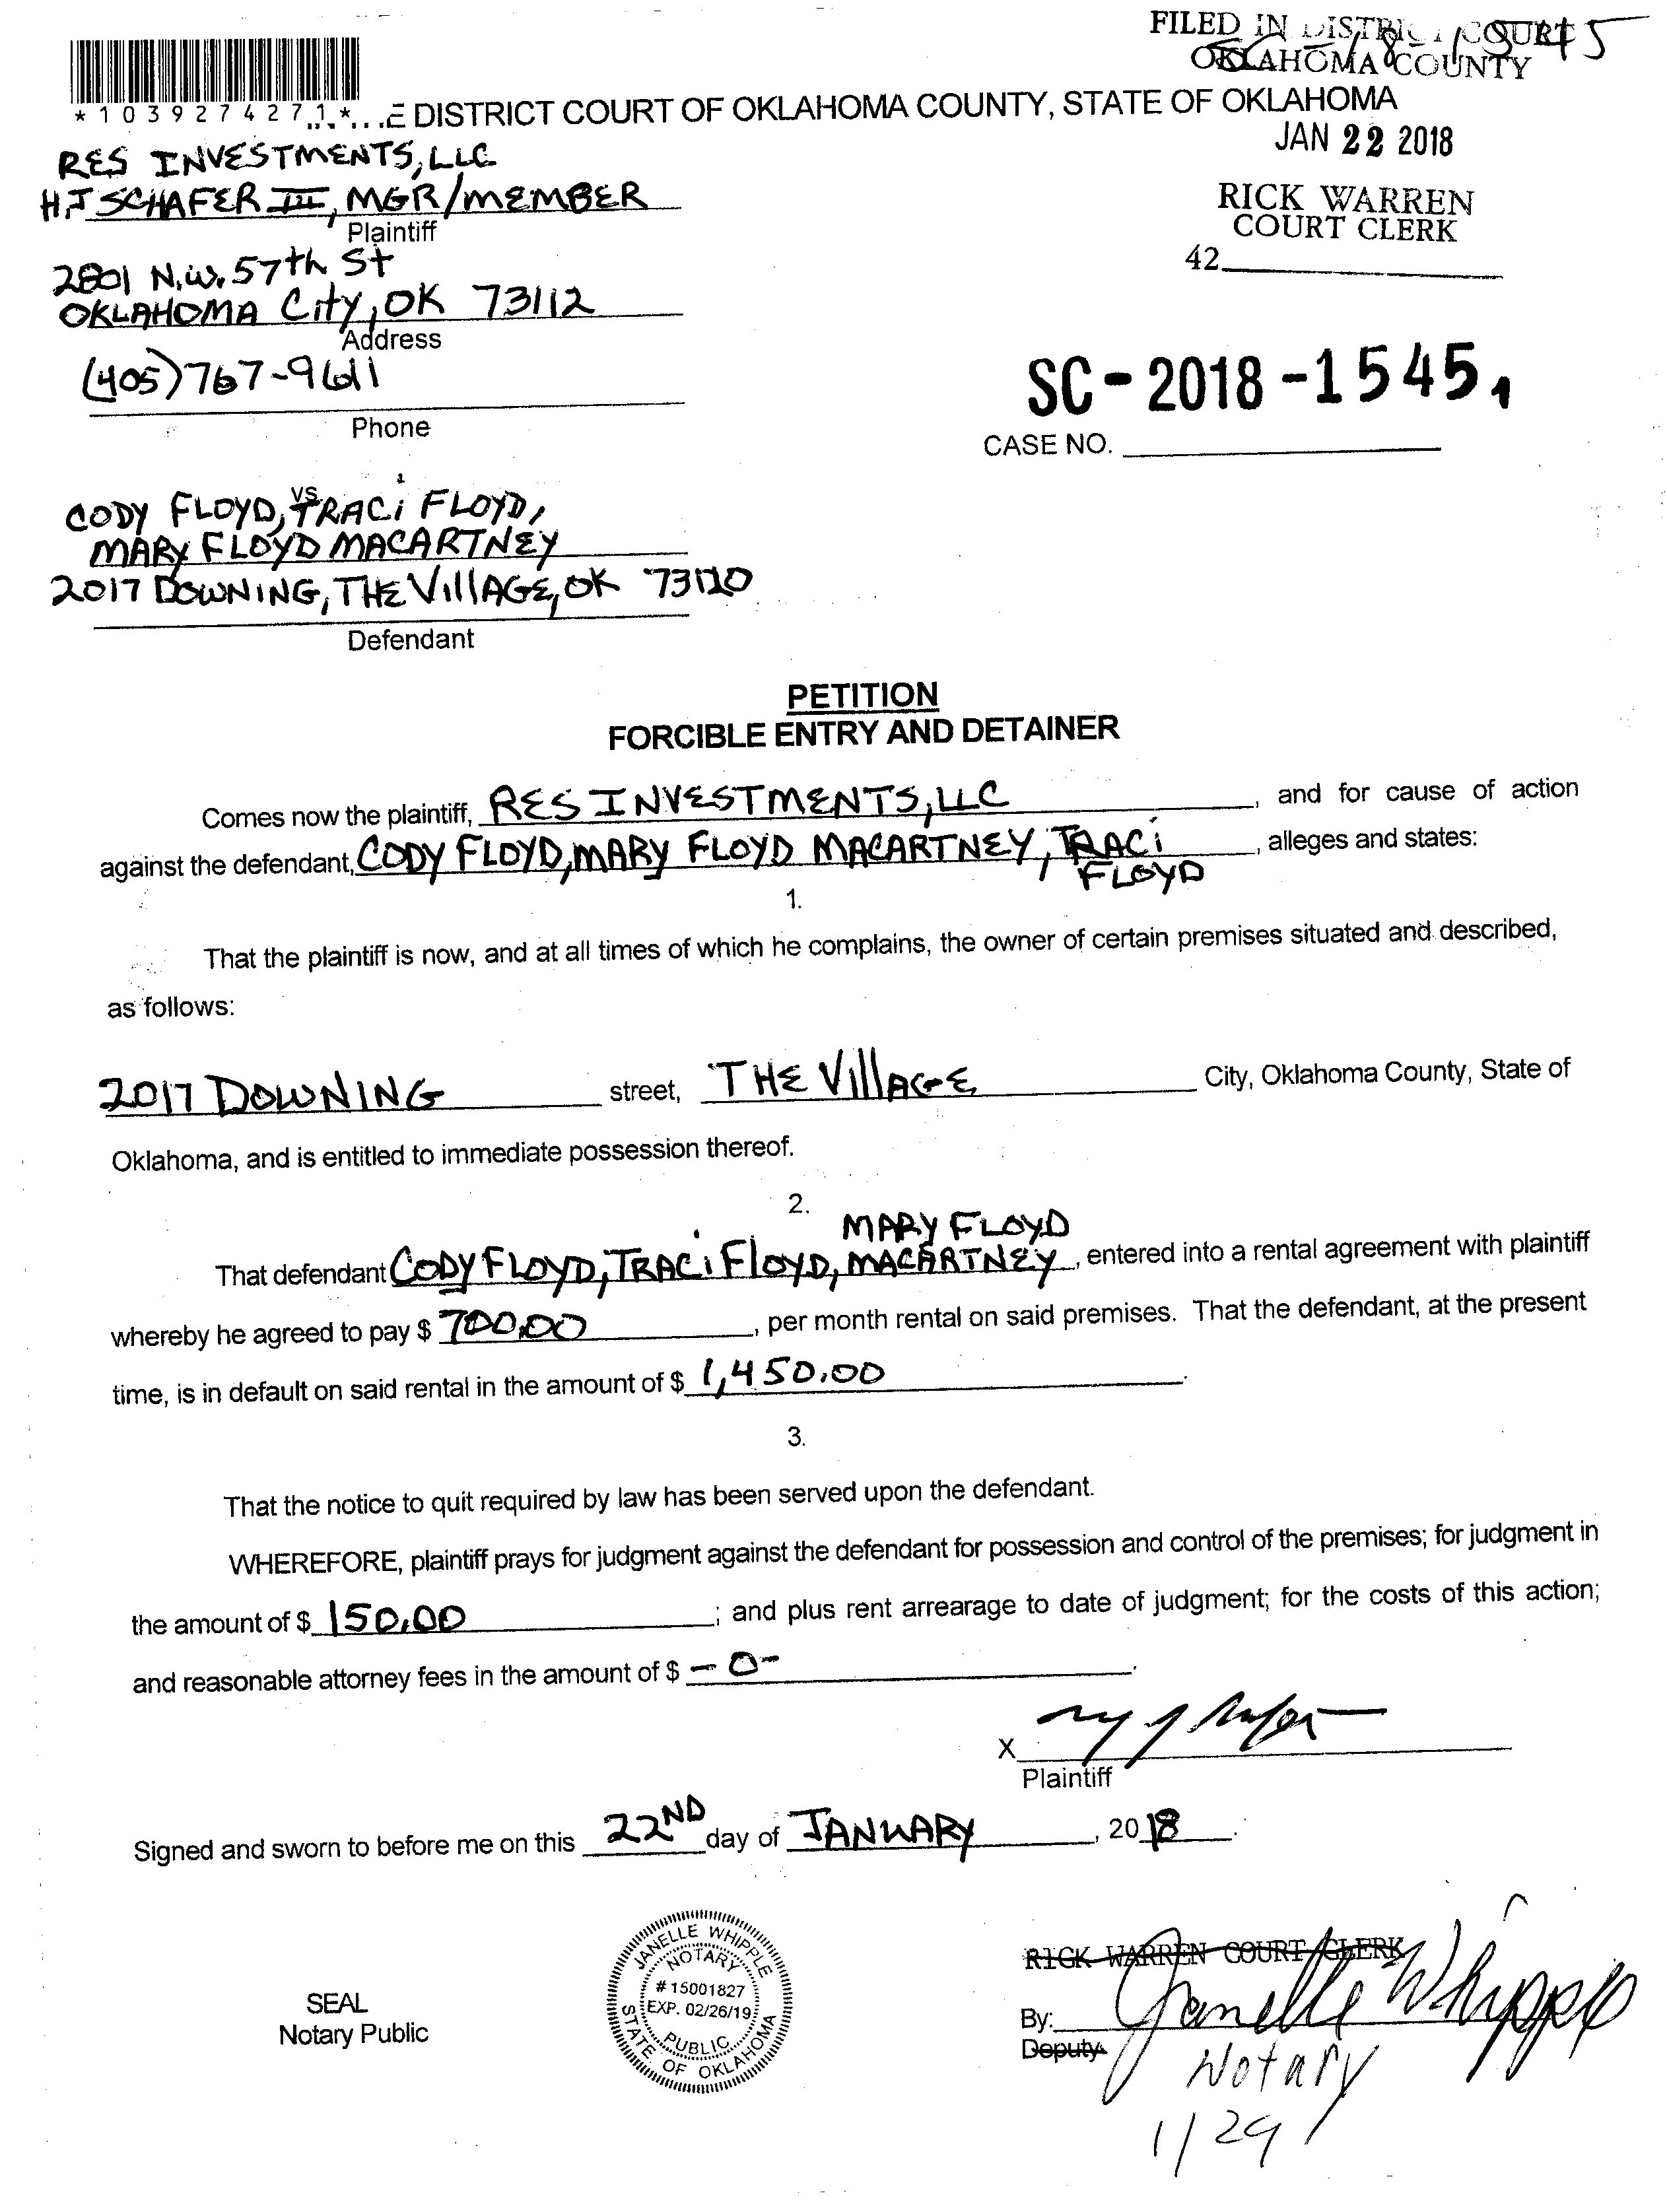 FILED IN DISTRICT COURT
OKLAHOMA COUNTY
*1039274271*
E DISTRICT COURT OF OKLAHOMA COUNTY, STATE OF OKLAHOMA
JAN 22 2018
RES INVESTMENTS, LLC
H.J SCHAFER III, MGR/MEMBER
Plaintiff
RICK WARREN
COURT CLERK
42
2801 N.W. 57th St
OKLAHOMA City, OK 73112
Address
(405) 767-9611
Phone
SC-2018-1545
CASE NO.
vs.
CODY FLOYD, TRACi FLOYD,
MARY FLOYD MACARTNEY
2017 DOWNING, THE VillAGE, OK 73120
Defendant
PETITION
FORCIBLE ENTRY AND DETAINER
Comes now the plaintiff, RES INVESTMENTS, LLC, and for cause of action
against the defendant, CODY FLOYD, MARY FLOYD MACARTNEY, TRACi FLOYD, alleges and states:
1.
That the plaintiff is now, and at all times of which he complains, the owner of certain premises situated and described,
as follows:
2017 DOWNING street, THE VillAGE City, Oklahoma County, State of
Oklahoma, and is entitled to immediate possession thereof.
2.
That defendant CODY FLOYD, TRACi FloYD, MARY FLOYD MACARTNEY, entered into a rental agreement with plaintiff
whereby he agreed to pay $ 700.00, per month rental on said premises. That the defendant, at the present
time, is in default on said rental in the amount of $ 1,450.00.
3.
That the notice to quit required by law has been served upon the defendant.
WHEREFORE, plaintiff prays for judgment against the defendant for possession and control of the premises; for judgment in
the amount of $ 150.00; and plus rent arrearage to date of judgment; for the costs of this action;
and reasonable attorney fees in the amount of $ -0-.
X
Plaintiff
Signed and sworn to before me on this 22ND day of JANUARY, 2018.
JANELLE WHIPPLE
NOTARY
# 15001827
EXP. 02/26/19
PUBLIC
STATE OF OKLAHOMA
SEAL
Notary Public
RICK WARREN COURT CLERK
By: Janelle Whipple
Deputy
Notary
1/29